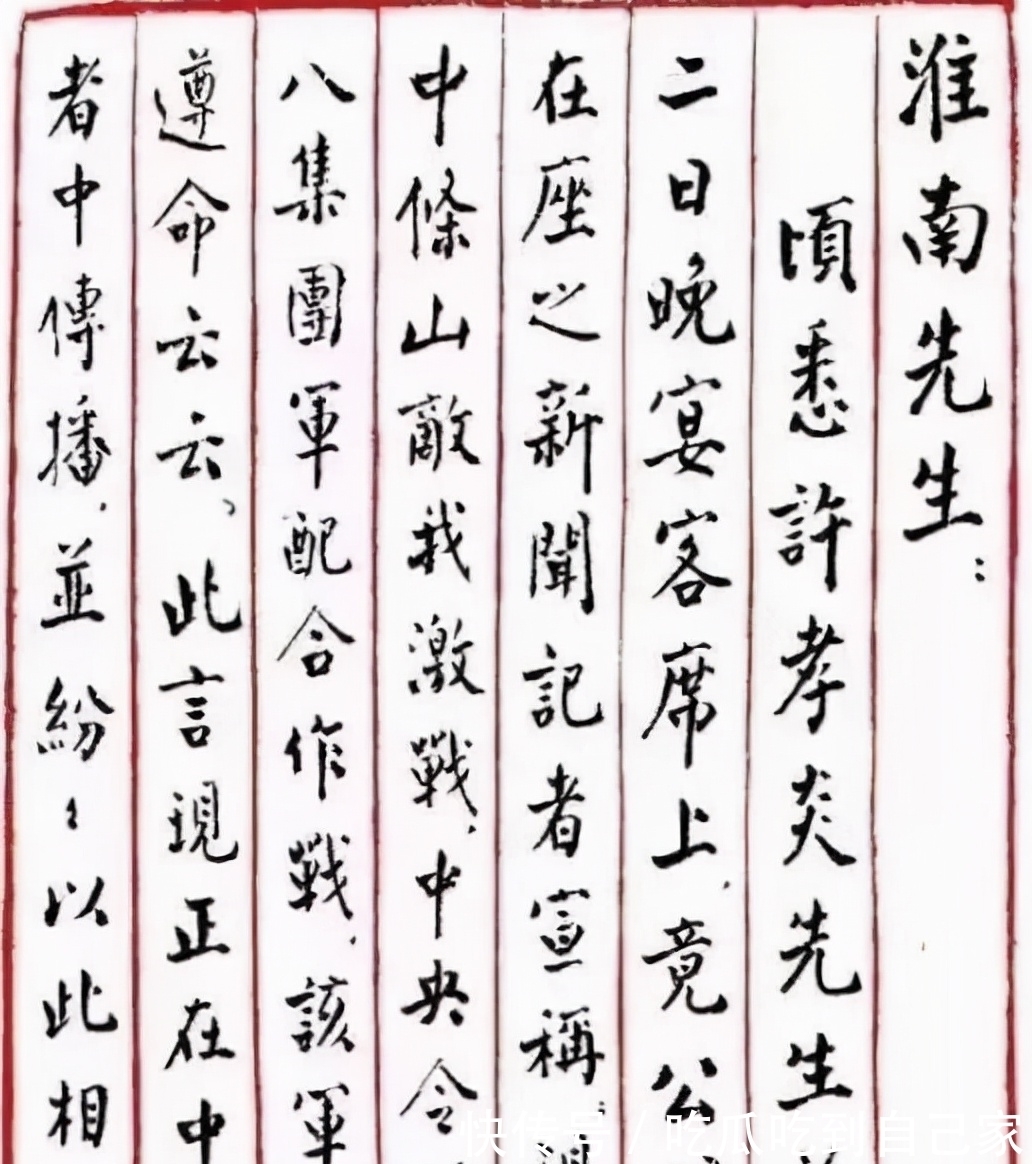 淮南先生：
頃悉許孝炎先生
二日晚宴客席上，竟公
在座之新聞記者宣稱
中條山敵我激戰，中央令
八集團軍配合作戰，該軍
遵命云云、此言現正在中
者中傳播，並紛〻以此相
快传号/吃瓜吃到自己家